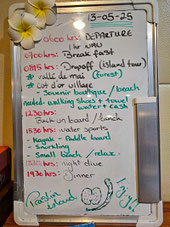 13-05-25
0400 hrs: DEPARTURE
0700hrs: Breakfast
0815 hrs: Dropoff (island tour)
* vallé de mai (forest)
* Cot d'or village
- Souvenir boutique / beach
needed: walking shoes + towel
water + cash
1230 hrs:
Back on board / lunch
1530 hrs: water sports
- Kayak - Paddle board
- Snorkling
- Small beach / relax.
1830 hrs: night dive
1930 hrs: Dinner
Praslin
island